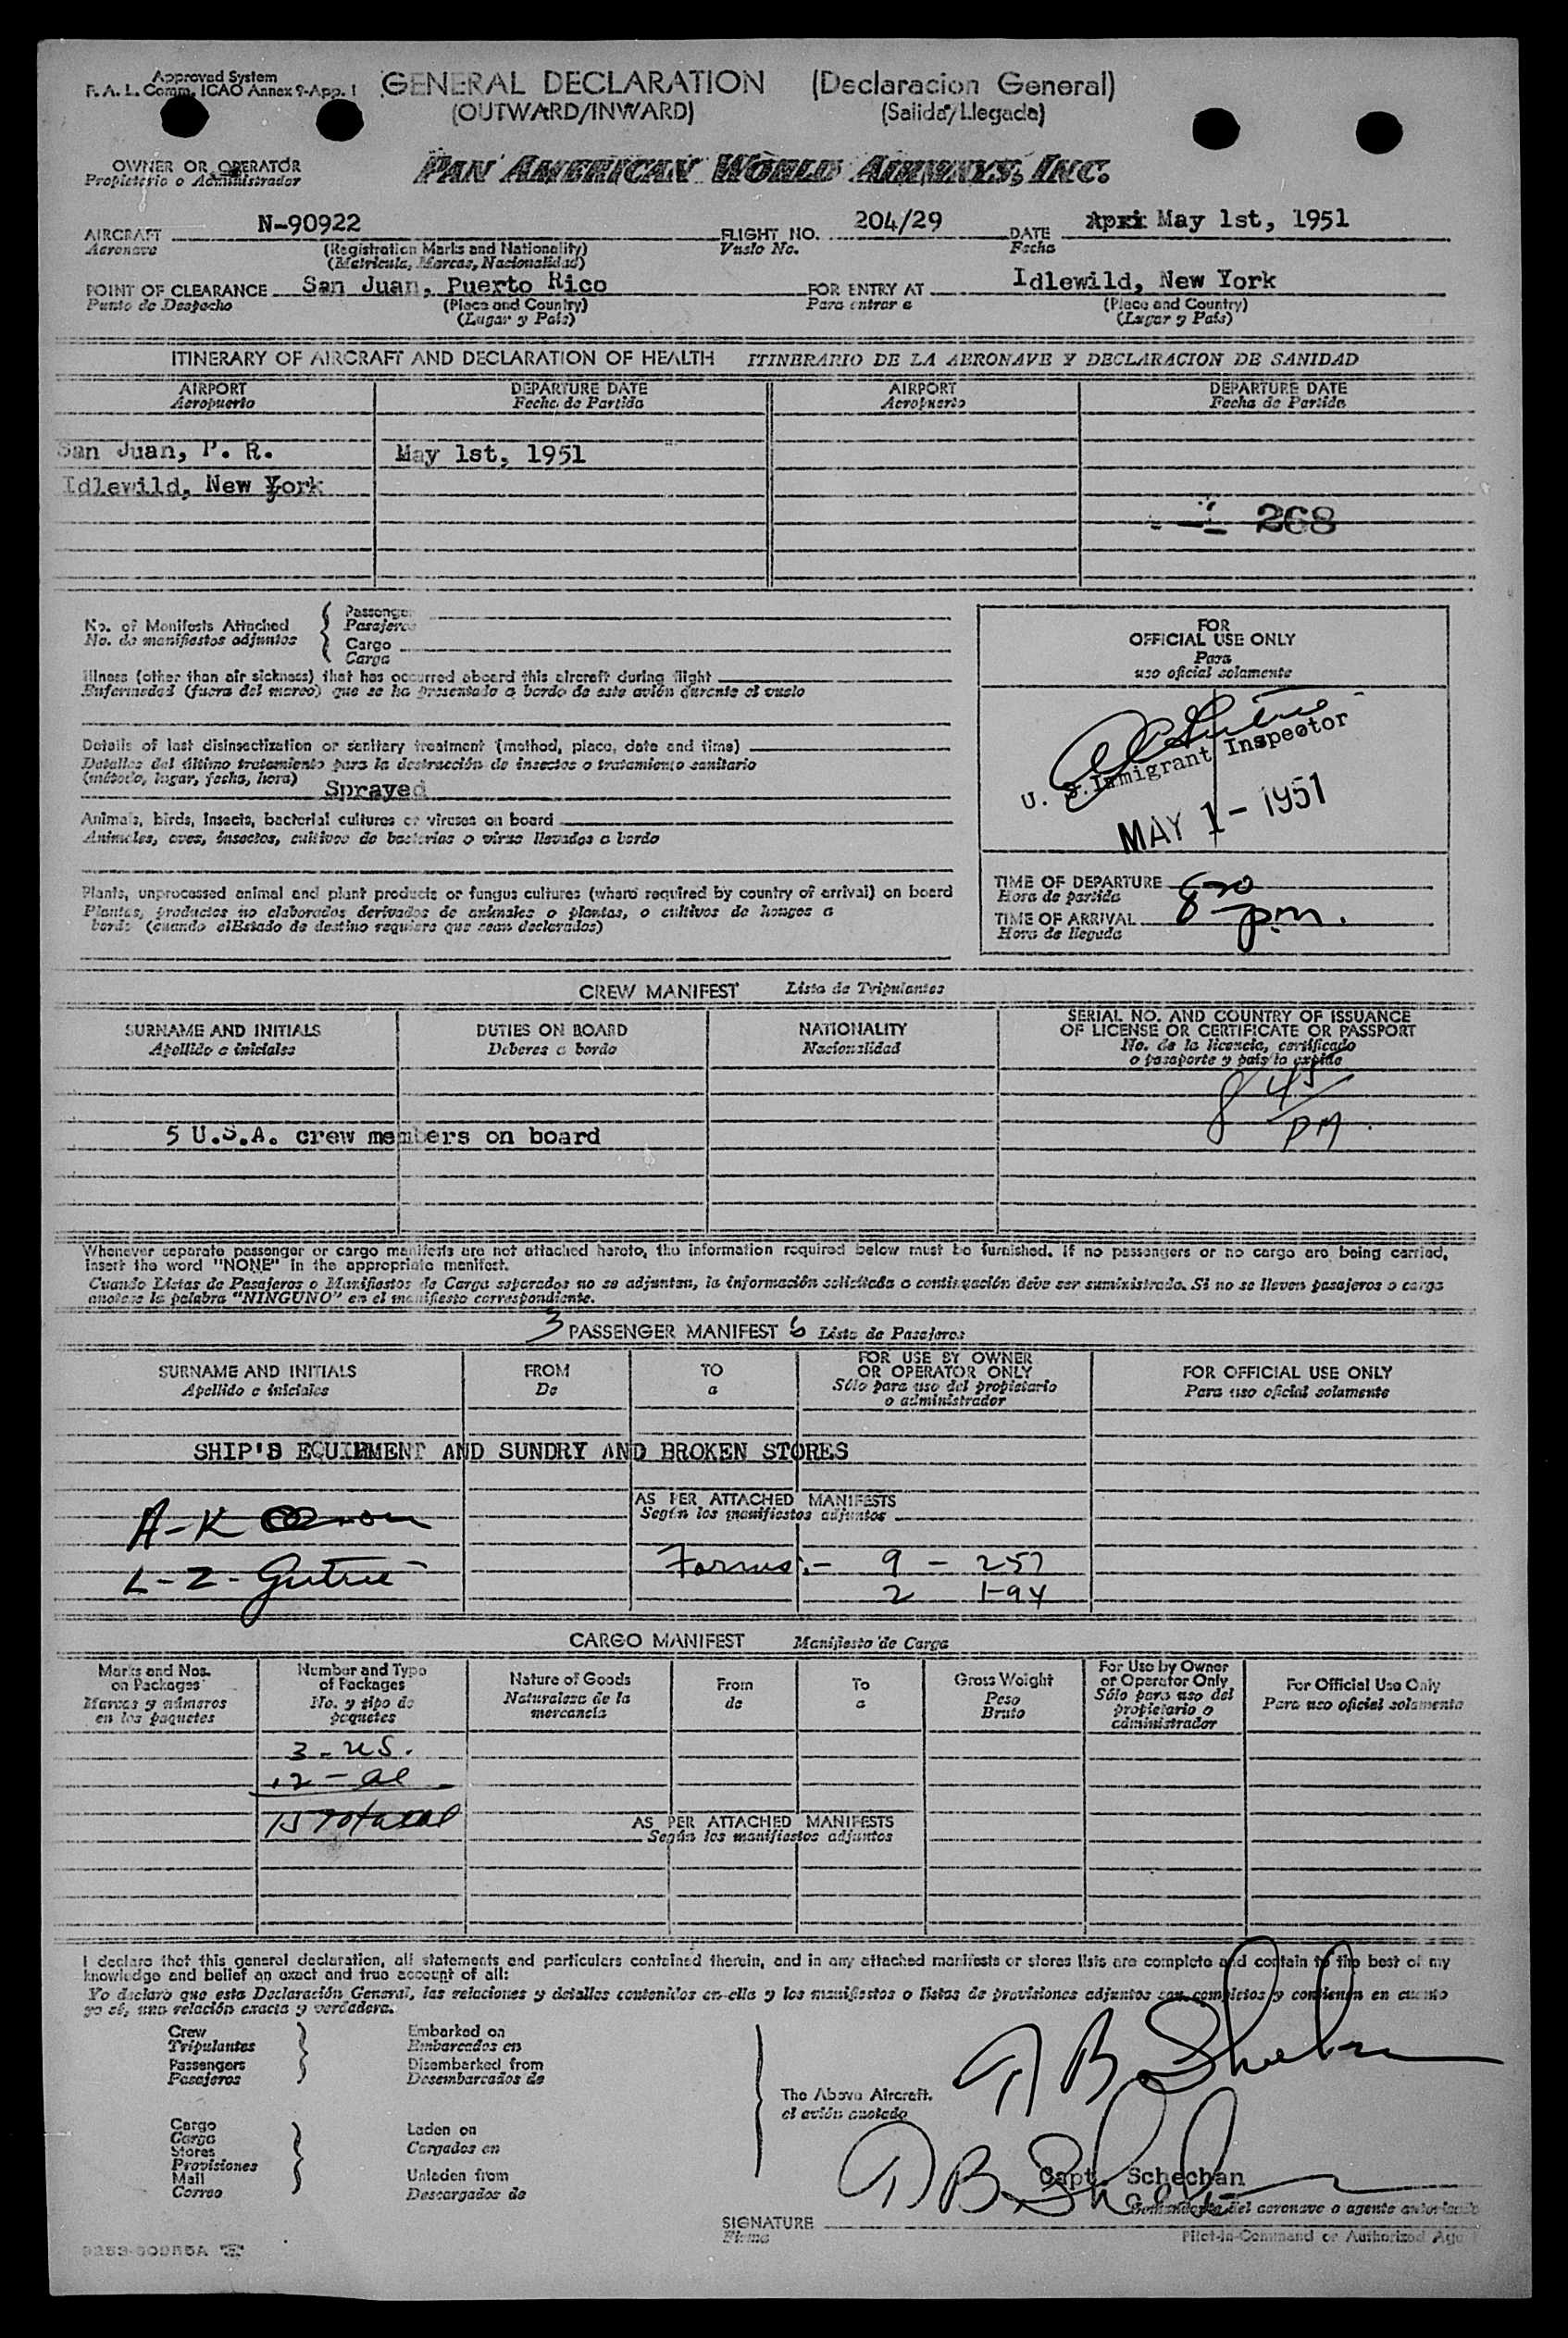 Approved System
F. A. L. Comm. ICAO Annex 9-App. 1
GENERAL DECLARATION (Declaracion General)
(OUTWARD/INWARD) (Salida/Llegada)
OWNER OR OPERATOR
Propietario o Administrador
PAN AMERICAN WORLD AIRWAYS, INC.
AIRCRAFT N-90922 FLIGHT NO. 204/29 DATE May 1st, 1951
Aeronave (Registration Marks and Nationality) Vuelo No. Fecha
(Matricula, Marcas, Nacionalidad)
POINT OF CLEARANCE San Juan, Puerto Rico FOR ENTRY AT Idlewild, New York
Punto de Despacho (Place and Country) Para entrar a (Place and Country)
(Lugar y País) (Lugar y País)
ITINERARY OF AIRCRAFT AND DECLARATION OF HEALTH ITINERARIO DE LA AERONAVE Y DECLARACION DE SANIDAD
AIRPORT DEPARTURE DATE AIRPORT DEPARTURE DATE
Aeropuerto Fecha de Partida Aeropuerto Fecha de Partida
San Juan, P. R. May 1st, 1951
Idlewild, New York
268
No. of Manifests Attached
No. de manifiestos adjuntos
Passenger
Pasajeros
Cargo
Carga
Illness (other than air sickness) that has occurred aboard this aircraft during flight
Enfermedad (fuera del mareo) que se ha presentado a bordo de este avión durante el vuelo
Details of last disinsectization or sanitary treatment (method, place, date and time)
Detalles del último tratamiento para la destrucción de insectos o tratamiento sanitario
(método, lugar, fecha, hora)
Sprayed
Animals, birds, insects, bacterial cultures or viruses on board
Animales, aves, insectos, cultivos de bacterias o virus llevados a bordo
Plants, unprocessed animal and plant products or fungus cultures (where required by country of arrival) on board
Plantas, productos no elaborados derivados de animales o plantas, o cultivos de hongos a
bordo (cuando elEstado de destino requiere que sean declarados)
FOR
OFFICIAL USE ONLY
Para
uso oficial solamente
U. S. Immigrant Inspector
MAY 1 - 1951
TIME OF DEPARTURE
Hora de partida
TIME OF ARRIVAL
Hora de llegada
pm.
CREW MANIFEST Lista de Tripulantes
SURNAME AND INITIALS DUTIES ON BOARD NATIONALITY SERIAL NO. AND COUNTRY OF ISSUANCE
OF LICENSE OR CERTIFICATE OR PASSPORT
Apellido e iniciales Deberes a bordo Nacionalidad No. de la licencia, certificado
o pasaporte y país lo expide
8 45
PM
5 U.S.A. crew members on board
Whenever separate passenger or cargo manifests are not attached hereto, the information required below must be furnished. If no passengers or no cargo are being carried,
insert the word "NONE" in the appropriate manifest.
Cuando Listas de Pasajeros o Manifiestos de Carga separados no se adjuntan, la información solicitada a continuación debe ser suministrada. Si no se lleven pasajeros o carga
anotese la palabra "NINGUNO" en el manifiesto correspondiente.
3 PASSENGER MANIFEST 6 Lista de Pasajeros
SURNAME AND INITIALS FROM TO FOR USE BY OWNER
OR OPERATOR ONLY FOR OFFICIAL USE ONLY
Apellido e iniciales De a Sólo para uso del propietario
o administrador Para uso oficial solamente
SHIP'S EQUIPMENT AND SUNDRY AND BROKEN STORES
AS PER ATTACHED MANIFESTS
Según los manifiestos adjuntos
A-K
L-Z-
9 - 257
2 1-94
CARGO MANIFEST Manifiesto de Carga
Marks and Nos.
on Packages
Marcas y números
en los paquetes
Number and Type
of Packages
No. y tipo de
paquetes
Nature of Goods
Naturaleza de la
mercancía
From
de
To
a
Gross Weight
Peso
Bruto
For Use by Owner
or Operator Only
Sólo para uso del
propietario o
administrador
For Official Use Only
Para uso oficial solamente
3 - US.
12 - al
15 total
AS PER ATTACHED MANIFESTS
Según los manifiestos adjuntos
I declare that this general declaration, all statements and particulars contained therein, and in any attached manifests or stores lists are complete and contain to the best of my
knowledge and belief an exact and true account of all:
Yo declaro que esta Declaración General, las relaciones y detalles contenidos en ella y los manifiestos o listas de provisiones adjuntos son completos y contienen en cuanto
yo sé, una relación exacta y verdadera.
Crew
Tripulantes
Passengers
Pasajeros
Embarked on
Embarcados en
Disembarked from
Desembarcados de
Cargo
Carga
Stores
Provisiones
Mail
Correo
Laden on
Cargados en
Unladen from
Descargados de
The Above Aircraft.
el avión anotado
Capt. Schechan
Comandante del aeronave o agente autorizado
SIGNATURE
Firma
Pilot-in-Command or Authorized Agent